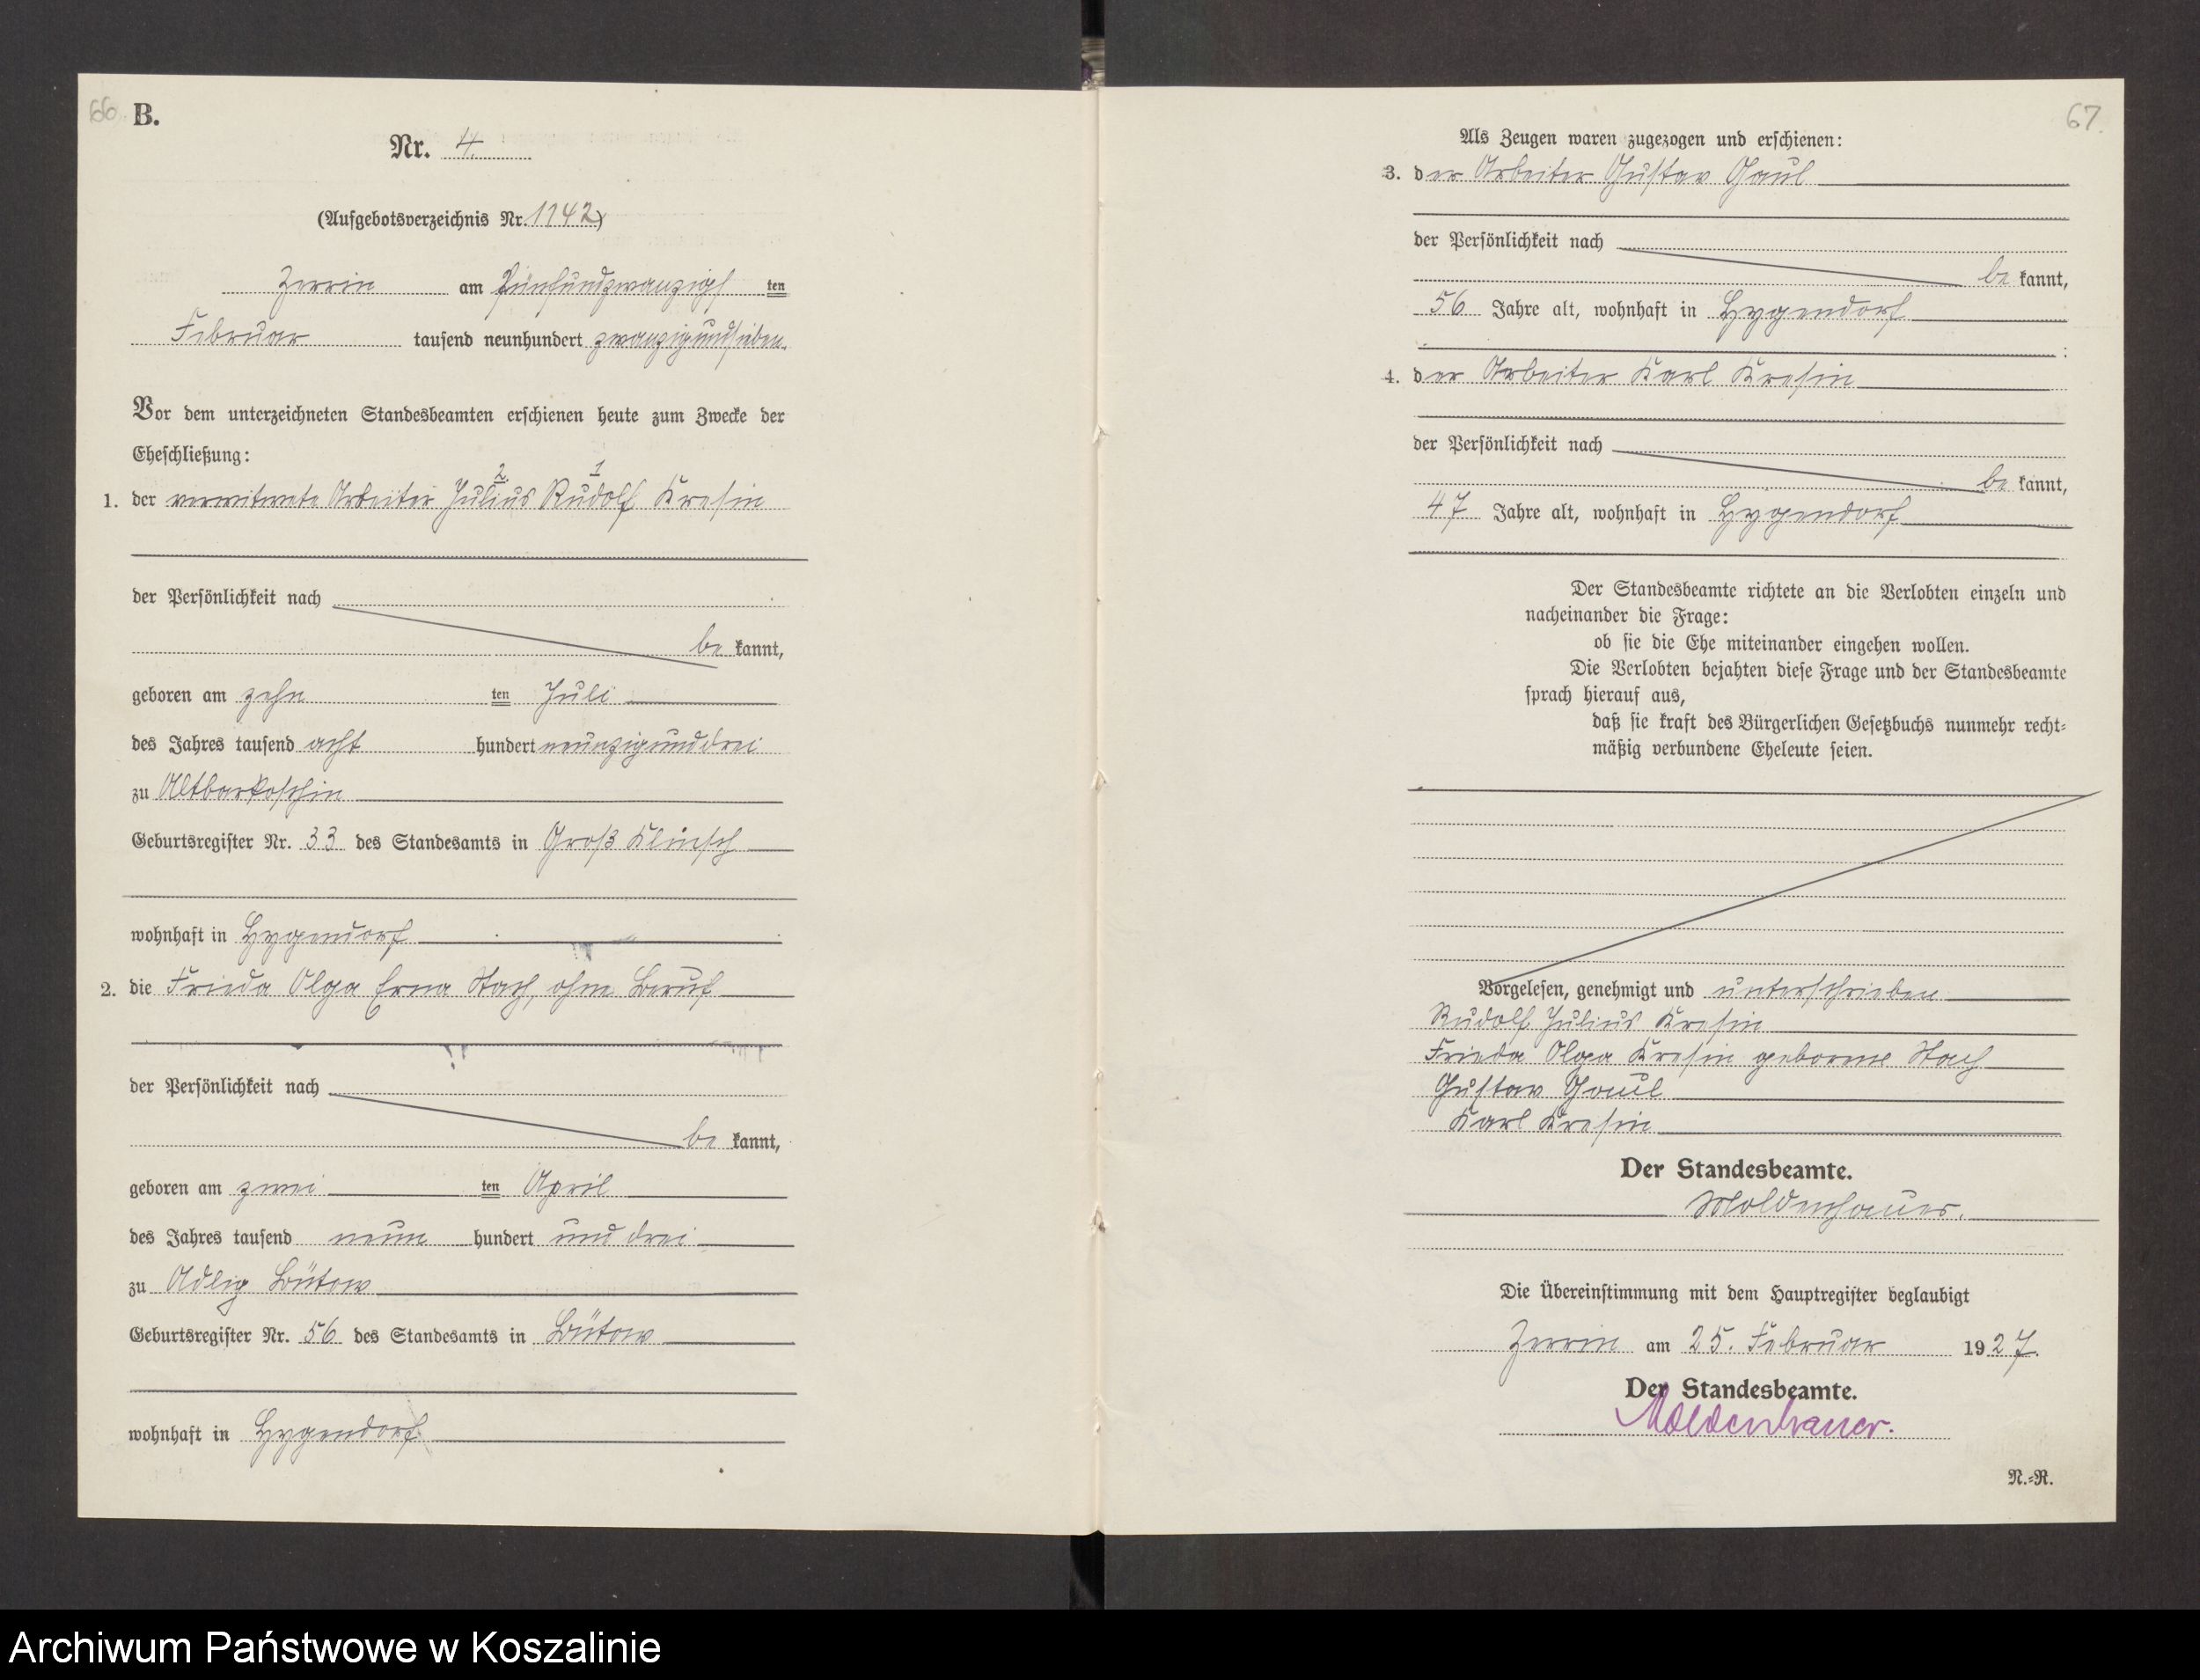 66. B.
Nr. 4.
(Aufgebotsverzeichnis Nr. 1142)
Zerrin am Fünfundzwanzigsten
Februar tausend neunhundert zwanzigundsieben.
Vor dem unterzeichneten Standesbeamten erschienen heute zum Zwecke der
Eheschließung:
2 1
1. der verwitwete Arbeiter Julius Rudolf Kresin
der Persönlichkeit nach
be kannt,
geboren am zehn ten Juli
des Jahres tausend acht hundert neunzigunddrei
zu Altbarkoschin
Geburtsregister Nr. 33 des Standesamts in Groß Klinsch
wohnhaft in Hygendorf
2. die Frieda Olga Erna Stach, ohne Beruf
der Persönlichkeit nach
be kannt,
geboren am zwei ten April
des Jahres tausend neun hundert und drei
zu Adlig Bütow
Geburtsregister Nr. 56 des Standesamts in Bütow
wohnhaft in Hygendorf
67.
Als Zeugen waren zugezogen und erschienen:
3. der Arbeiter Gustav Gaul
der Persönlichkeit nach
be kannt,
56 Jahre alt, wohnhaft in Hygendorf
;
4. der Arbeiter Karl Kresin
der Persönlichkeit nach
be kannt,
47 Jahre alt, wohnhaft in Hygendorf
Der Standesbeamte richtete an die Verlobten einzeln und
nacheinander die Frage:
ob sie die Ehe miteinander eingehen wollen.
Die Verlobten bejahten diese Frage und der Standesbeamte
sprach hierauf aus,
daß sie kraft des Bürgerlichen Gesetzbuchs nunmehr recht-
mäßig verbundene Eheleute seien.
Vorgelesen, genehmigt und unterschrieben
Rudolf Julius Kresin
Frieda Olga Kresin geborene Stach
Gustav Gaul
Karl Kresin
Der Standesbeamte.
Moldenhauer.
Die Übereinstimmung mit dem Hauptregister beglaubigt
Zerrin am 25. Februar 1927.
Der Standesbeamte.
Moldenhauer.
N.-R.
Archiwum Państwowe w Koszalinie